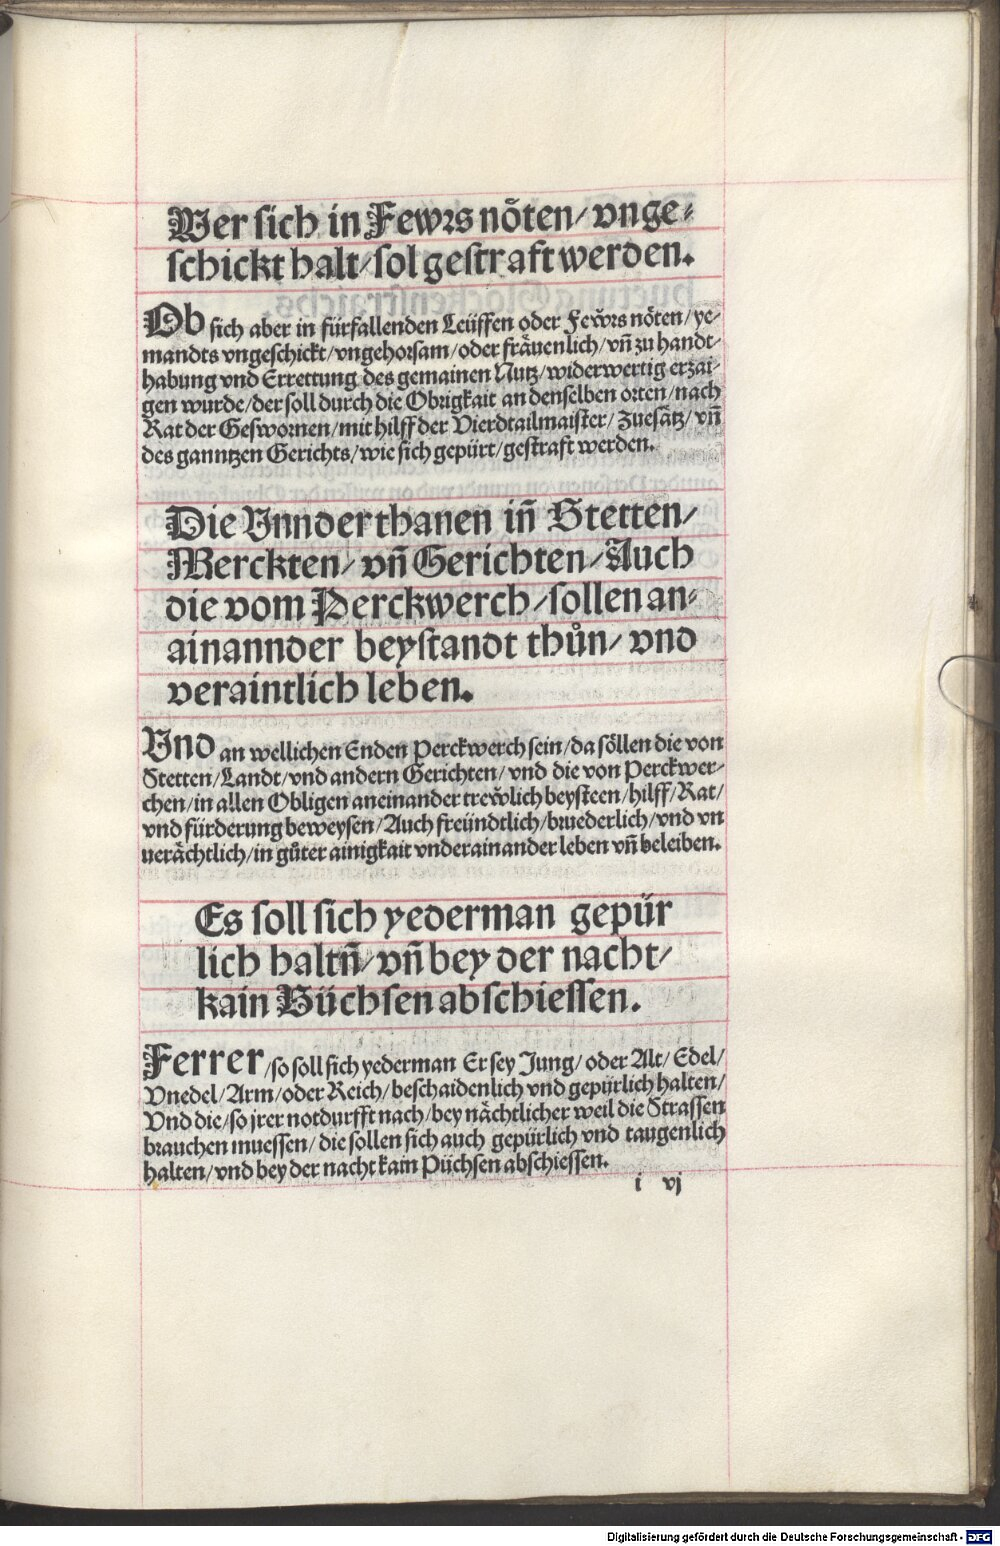 Wer sich in Fewrs nöten/ vnge-
schickt halt/ sol gestraft werden.
Ob sich aber in fürfallenden Leüffen oder Fewrs nöten/ ye-
mandts vngeschickt/ vngehorsam/ oder fräuenlich/ vn̄ zu handt-
habung vnd Errettung des gemainen Nutz/ widerwertig erzai-
gen wurde/ der soll durch die Obrigkait an denselben orten/ nach
Rat der Geswornen/ mit hilff der Vierdtailmaister/ Zuesätz/ vn̄
des ganntzen Gerichts/ wie sich gepürt/ gestraft werden.
Die Vnnderthanen in̄ Stetten/
Merckten/ vn̄ Gerichten/ Auch
die vom Perckwerch/ sollen an-
ainannder beystandt thůn/ vnd
veraintlich leben.
Vnd an wellichen Enden Perckwerch sein/ da söllen die von
Stetten/ Landt/ vnd andern Gerichten/ vnd die von Perckwer-
chen/ in allen Obligen aneinander trewlich beysteen/ hilff/ Rat/
vnd fürderung beweysen/ Auch freündtlich/ bruederlich/ vnd vn
uerächtlich/ in gůter ainigkait vnderainander leben vn̄ beleiben.
Es soll sich yederman gepür
lich haltn̄/ vn̄ bey der nacht/
kain Büchsen abschiessen.
Ferrer/ so soll sich yederman Er sey Jung/ oder Alt/ Edel/
Vnedel/ Arm/ oder Reich/ beschaidenlich vnd gepürlich halten/
Vnd die/ so jrer notdurfft nach/ bey nächtlicher weil die Strassen
brauchen muessen/ die sollen sich auch gepürlich vnd taugenlich
halten/ vnd bey der nacht kain Püchsen abschiessen.
i vj
Digitalisierung gefördert durch die Deutsche Forschungsgemeinschaft - DFG